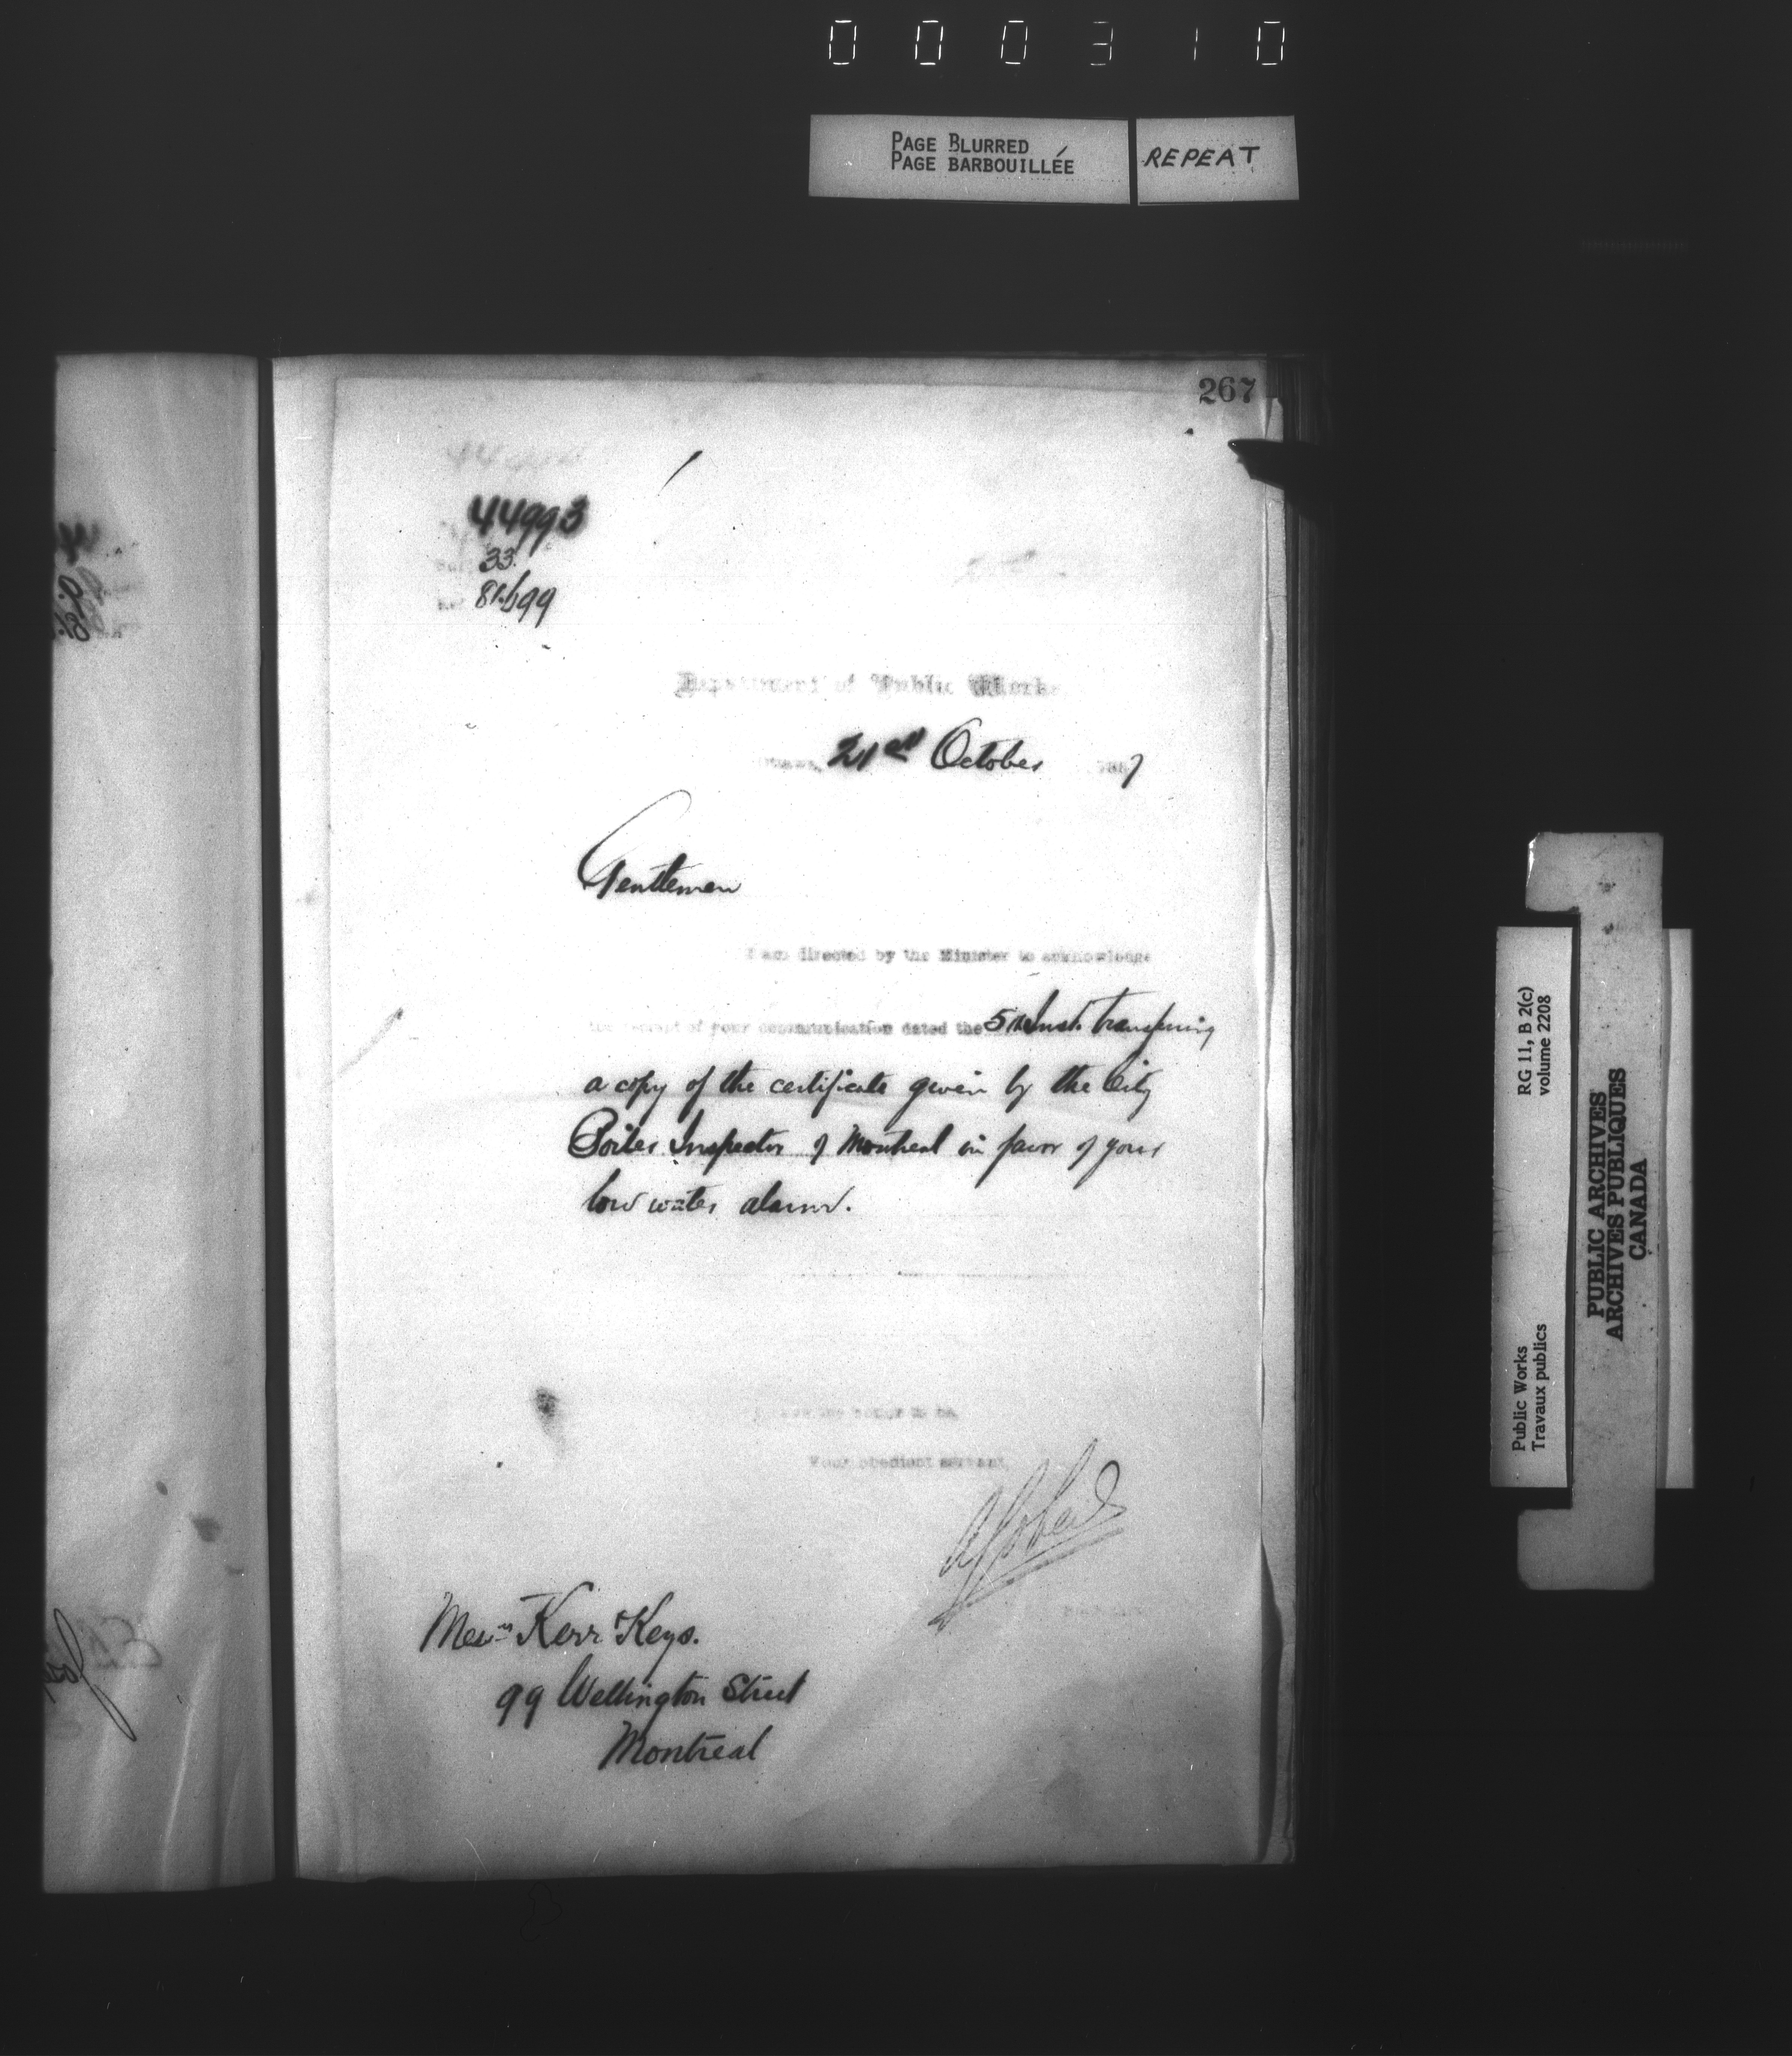 000310
PAGE BLURRED
PAGE BARBOUILLÉE
REPEAT
267
44993
33.
81.699
Department of Public Works
Ottawa, 21st October 1887
Gentlemen
I am directed by the Minister to acknowledge
the receipt of your communication dated the 5th Inst. transfering
a copy of the certificate given by the City
Boiler Inspector of Montreal in favor of your
low water alarm.
I have the honor to be
Your obedient servant,
Messrs Kerr & Keys.
99 Wellington Street
Montreal
Public Works
Travaux publics
RG 11, B 2(c)
volume 2208
PUBLIC ARCHIVES
ARCHIVES PUBLIQUES
CANADA